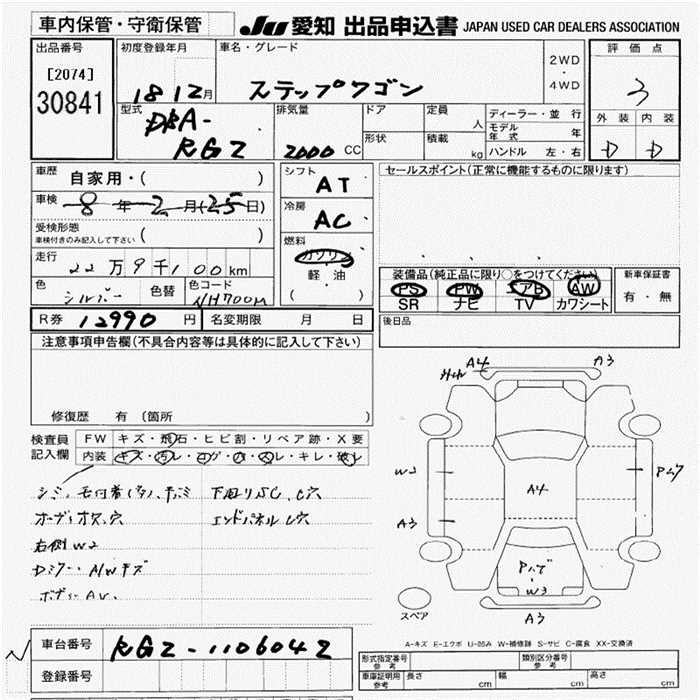 車内保管・守衛保管
JU 愛知 出品申込書 JAPAN USED CAR DEALERS ASSOCIATION
出品番号
[2074]
30841
初度登録年月
18 12月
車名・グレード
ステップワゴン
2WD
・
4WD
評価点
3
外装 内装
D D
型式
DBA-
RG2
排気量
2000 CC
ドア
形状
定員
人
積載
kg
ディーラー・並行
モデル年式 年
ハンドル 左・右
車歴
自家用・( )
車検
8年2月(25日)
受検形態
車検付きのみ記入して下さい ( )
走行
22万9千100km
色
シルバー
色替
色コード
NH700M
シフト
AT
冷房
AC
燃料
ガソリン
軽・油
( )
セールスポイント(正常に機能するものに限ります)
装備品(純正品に限り○をつけてください)
PS PW エアB AW
SR ナビ TV カワシート
新車保証書
有・無
R券 12990円
名変期限 月 日
後日品
注意事項申告欄(不具合内容等は具体的に記入して下さい)
修復歴 有 (箇所
検査員
記入欄
FW キズ・飛石・ヒビ割・リペア跡・X要
内装 キズ・汚レ・コゲ・穴・スレ・キレ・破レ
下回りSC、C穴
エンドパネルC穴
右側W2
Dミラー、AWキズ
A4
A3
W2
A3
A4
W3
A3
スペア
A-キズ E-エクボ U-凹み W-補修跡 S-サビ C-腐食 XX-交換済
車台番号
RG2-1106042
登録番号
形式指定番号
参考
類別区分番号
参考
車庫証明用
参考
長さ cm
幅 cm
高さ cm